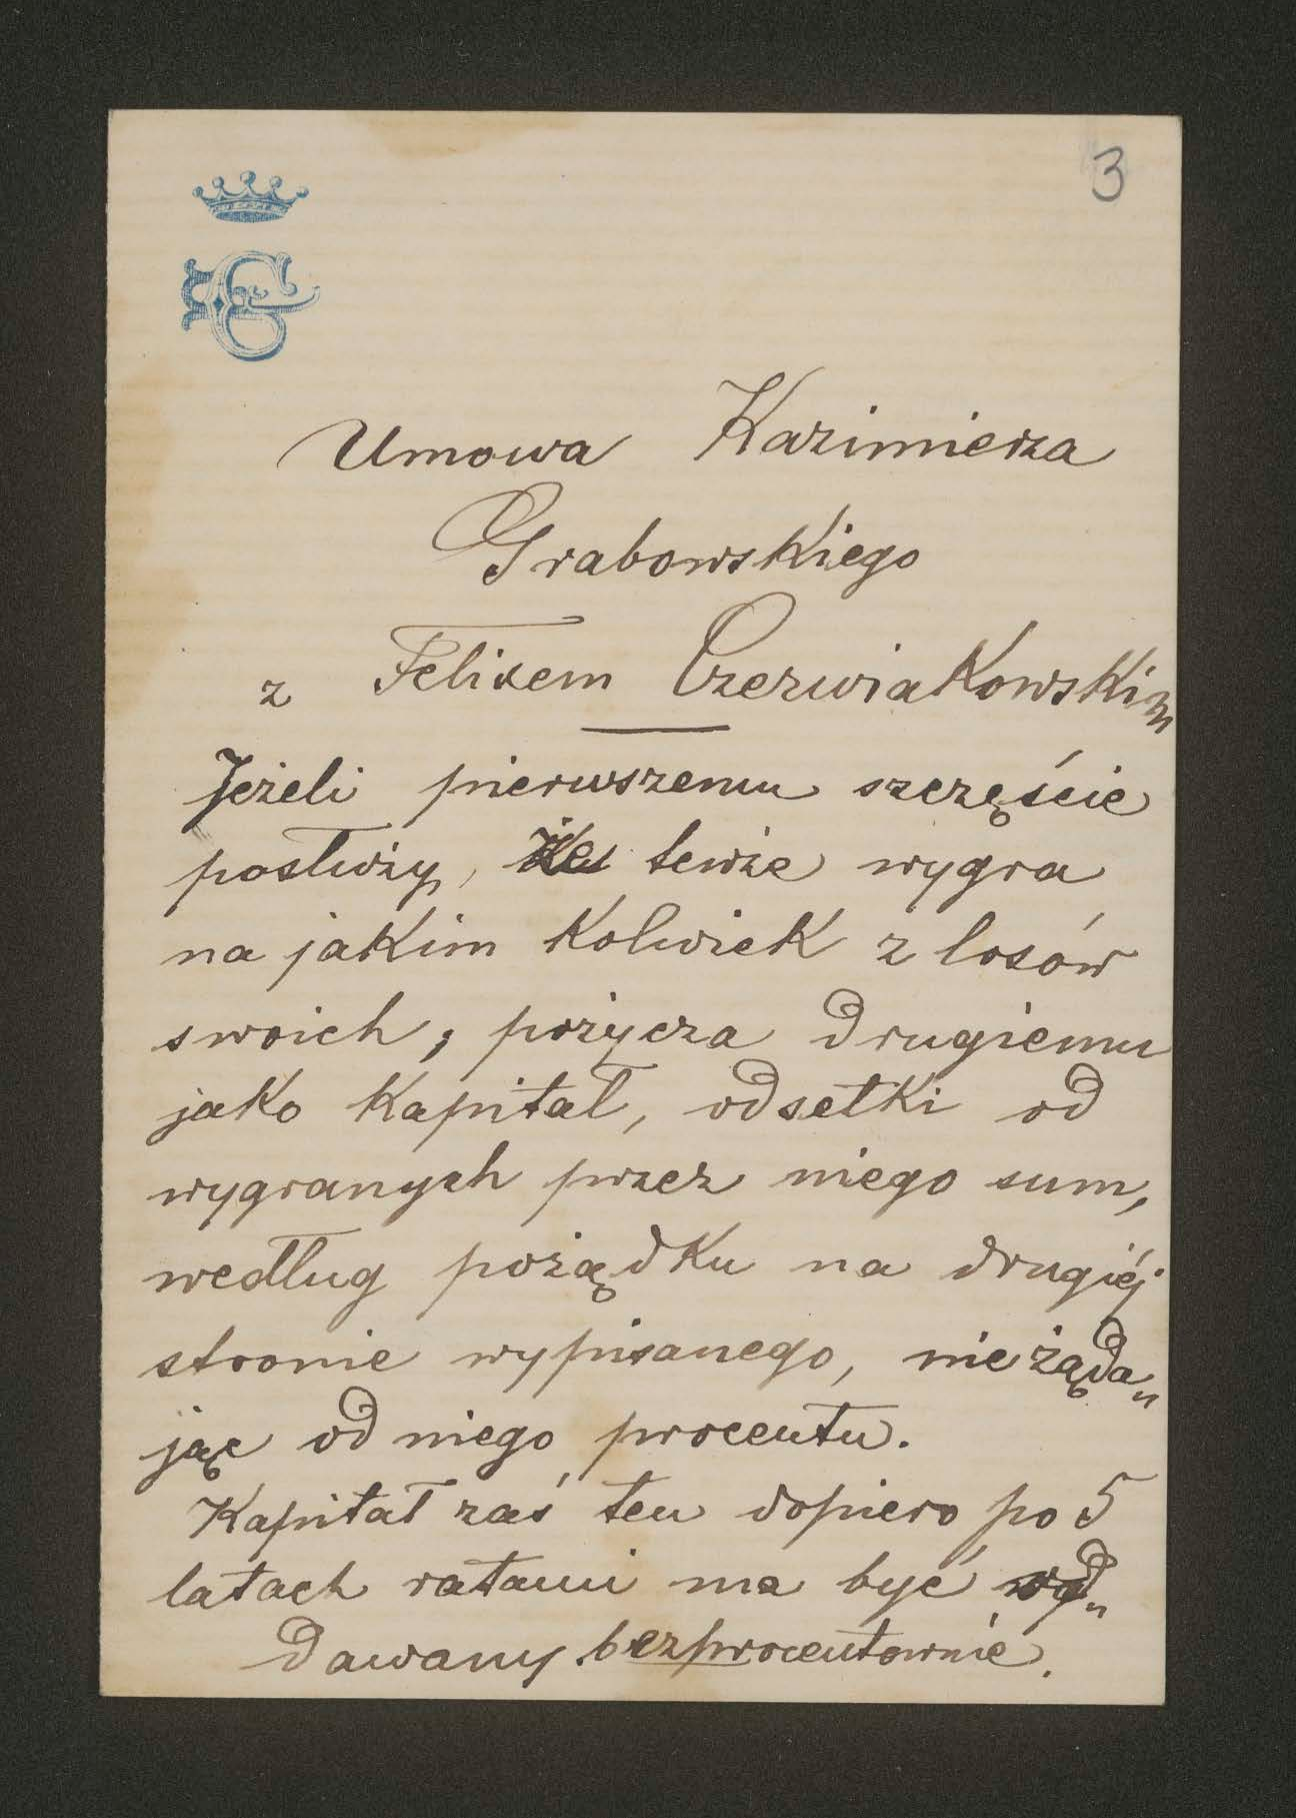 3
Umowa Kazimierza
Grabowskiego
z Felixem Czerwiakowskim
Jeżeli pierwszemu szczęście
posłuży, że tenże wygra
na jakim kolwiek z losów
swoich; pożycza drugiemu
jako kapitał, odsetki od
wygranych przez niego sum,
według pożądku na drugiéj
stronie wypisanego, nie żąda„
jąc od niego procentu.
Kapitał zaś ten dopiero po 5
latach ratami ma być od„
dawany bezprocentownie.